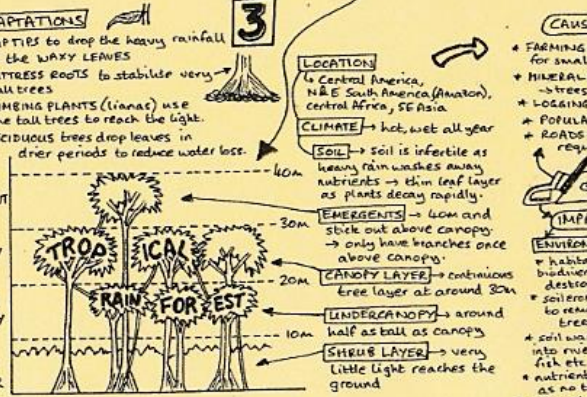 APTATIONS
P TIPS to drop the heavy rainfall
the WAXY LEAVES
TTRESS ROOTS to stabilise very
all trees
MBING PLANTS (lianas) use
e tall trees to reach the light.
CIDUOUS trees drop leaves in
drier periods to reduce water loss.
3
40m
30m
20m
10m
TROP ICAL
RAIN FOR EST
LOCATION
↳ Central America,
N&E South America (Amazon),
central Africa, SE Asia
CLIMATE → hot, wet all year
SOIL → soil is infertile as
heavy rain washes away
nutrients → thin leaf layer
as plants decay rapidly.
EMERGENTS → 40m and
stick out above canopy.
→ only have branches once
above canopy.
CANOPY LAYER → continuous
tree layer at around 30m
UNDERCANOPY → around
half as tall as canopy
SHRUB LAYER → very
little light reaches the
ground
CAUS
* FARMING
for smal
* MINERAL
→ trees
* LOGGING
* POPULA
* ROADS
requ
IMP
ENVIRON
* habita
biodiv
destro
* soil ero
to rem
tree
* soil wa
into riv
fish etc
* nutrient
as no t